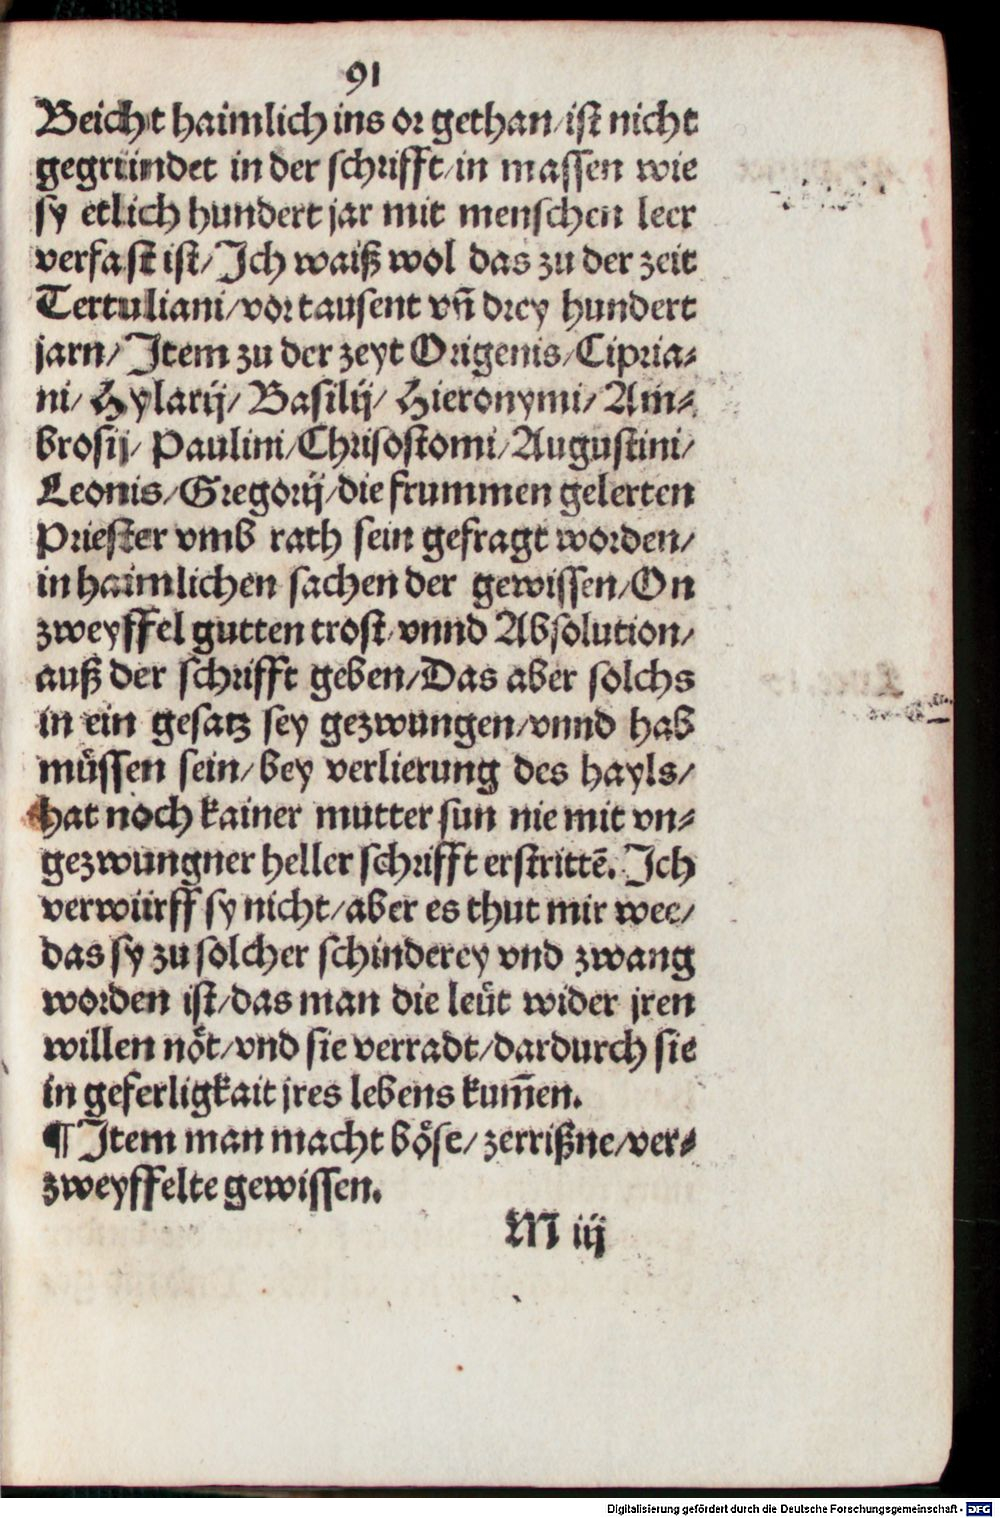 91
Beicht haimlich ins or gethan/ist nicht
gegründet in der schrifft/in massen wie
sy etlich hundert jar mit menschen leer
verfast ist/Ich waiß wol das zu der zeit
Tertuliani/vor tausent vn̄ drey hundert
jarn/Item zu der zeyt Origenis/Cipria⸗
ni/Hylarij/Basilij/Hieronymi/Am⸗
brosij/Paulini/Chrisostomi/Augustini/
Leonis/Gregorij/die frummen gelerten
Priester vmb rath sein gefragt worden/
in haimlichen sachen der gewissen/On
zweyffel gutten trost/vnnd Absolution/
auß der schrifft geben/Das aber solchs
in ein gesatz sey gezwungen/vnnd hab
müssen sein/bey verlierung des hayls/
hat noch kainer mutter sun nie mit vn⸗
gezwungner heller schrifft erstrittē. Ich
verwürff sy nicht/aber es thut mir wee/
das sy zu solcher schinderey vnd zwang
worden ist/das man die leüt wider jren
willen nöt/vnd sie verradt/dardurch sie
in geferligkait jres lebens kum̄en.
¶ Item man macht böse/zerrißne/ver⸗
zweyffelte gewissen.
M iij
Digitalisierung gefördert durch die Deutsche Forschungsgemeinschaft - DFG